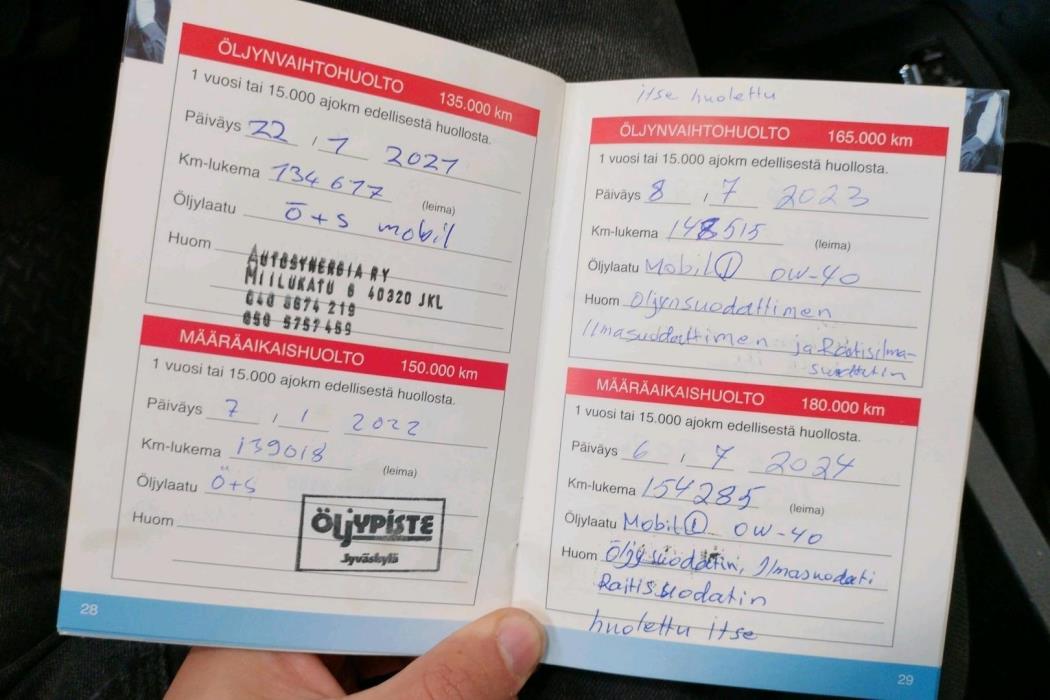 ÖLJYNVAIHTOHUOLTO 135.000 km
1 vuosi tai 15.000 ajokm edellisestä huollosta.
Päiväys 22 , 1 2021
Km-lukema 134677
(leima)
Öljylaatu ö+s mobil
Huom
AUTOSYNERGIA RY
MIILUKATU 6 40320 JKL
040 8674 219
050 5757459
MÄÄRÄAIKAISHUOLTO 150.000 km
1 vuosi tai 15.000 ajokm edellisestä huollosta.
Päiväys 7 , 1 2022
Km-lukema 139018
(leima)
Öljylaatu Ö+s
Huom
ÖLJYPISTE
Jyväskylä
28
itse huolettu
ÖLJYNVAIHTOHUOLTO 165.000 km
1 vuosi tai 15.000 ajokm edellisestä huollosta.
Päiväys 8 , 7 2023
Km-lukema 148515
(leima)
Öljylaatu Mobil 1 0W-40
Huom Öljynsuodattimen
Ilmasuodattimen ja Raitisilma-
suodatin
MÄÄRÄAIKAISHUOLTO 180.000 km
1 vuosi tai 15.000 ajokm edellisestä huollosta.
Päiväys 6 , 7 2024
Km-lukema 154285
(leima)
Öljylaatu Mobil 1 0W-40
Huom Öljysuodatin, Ilmasuodati
Raitissuodatin
huolettu itse
29